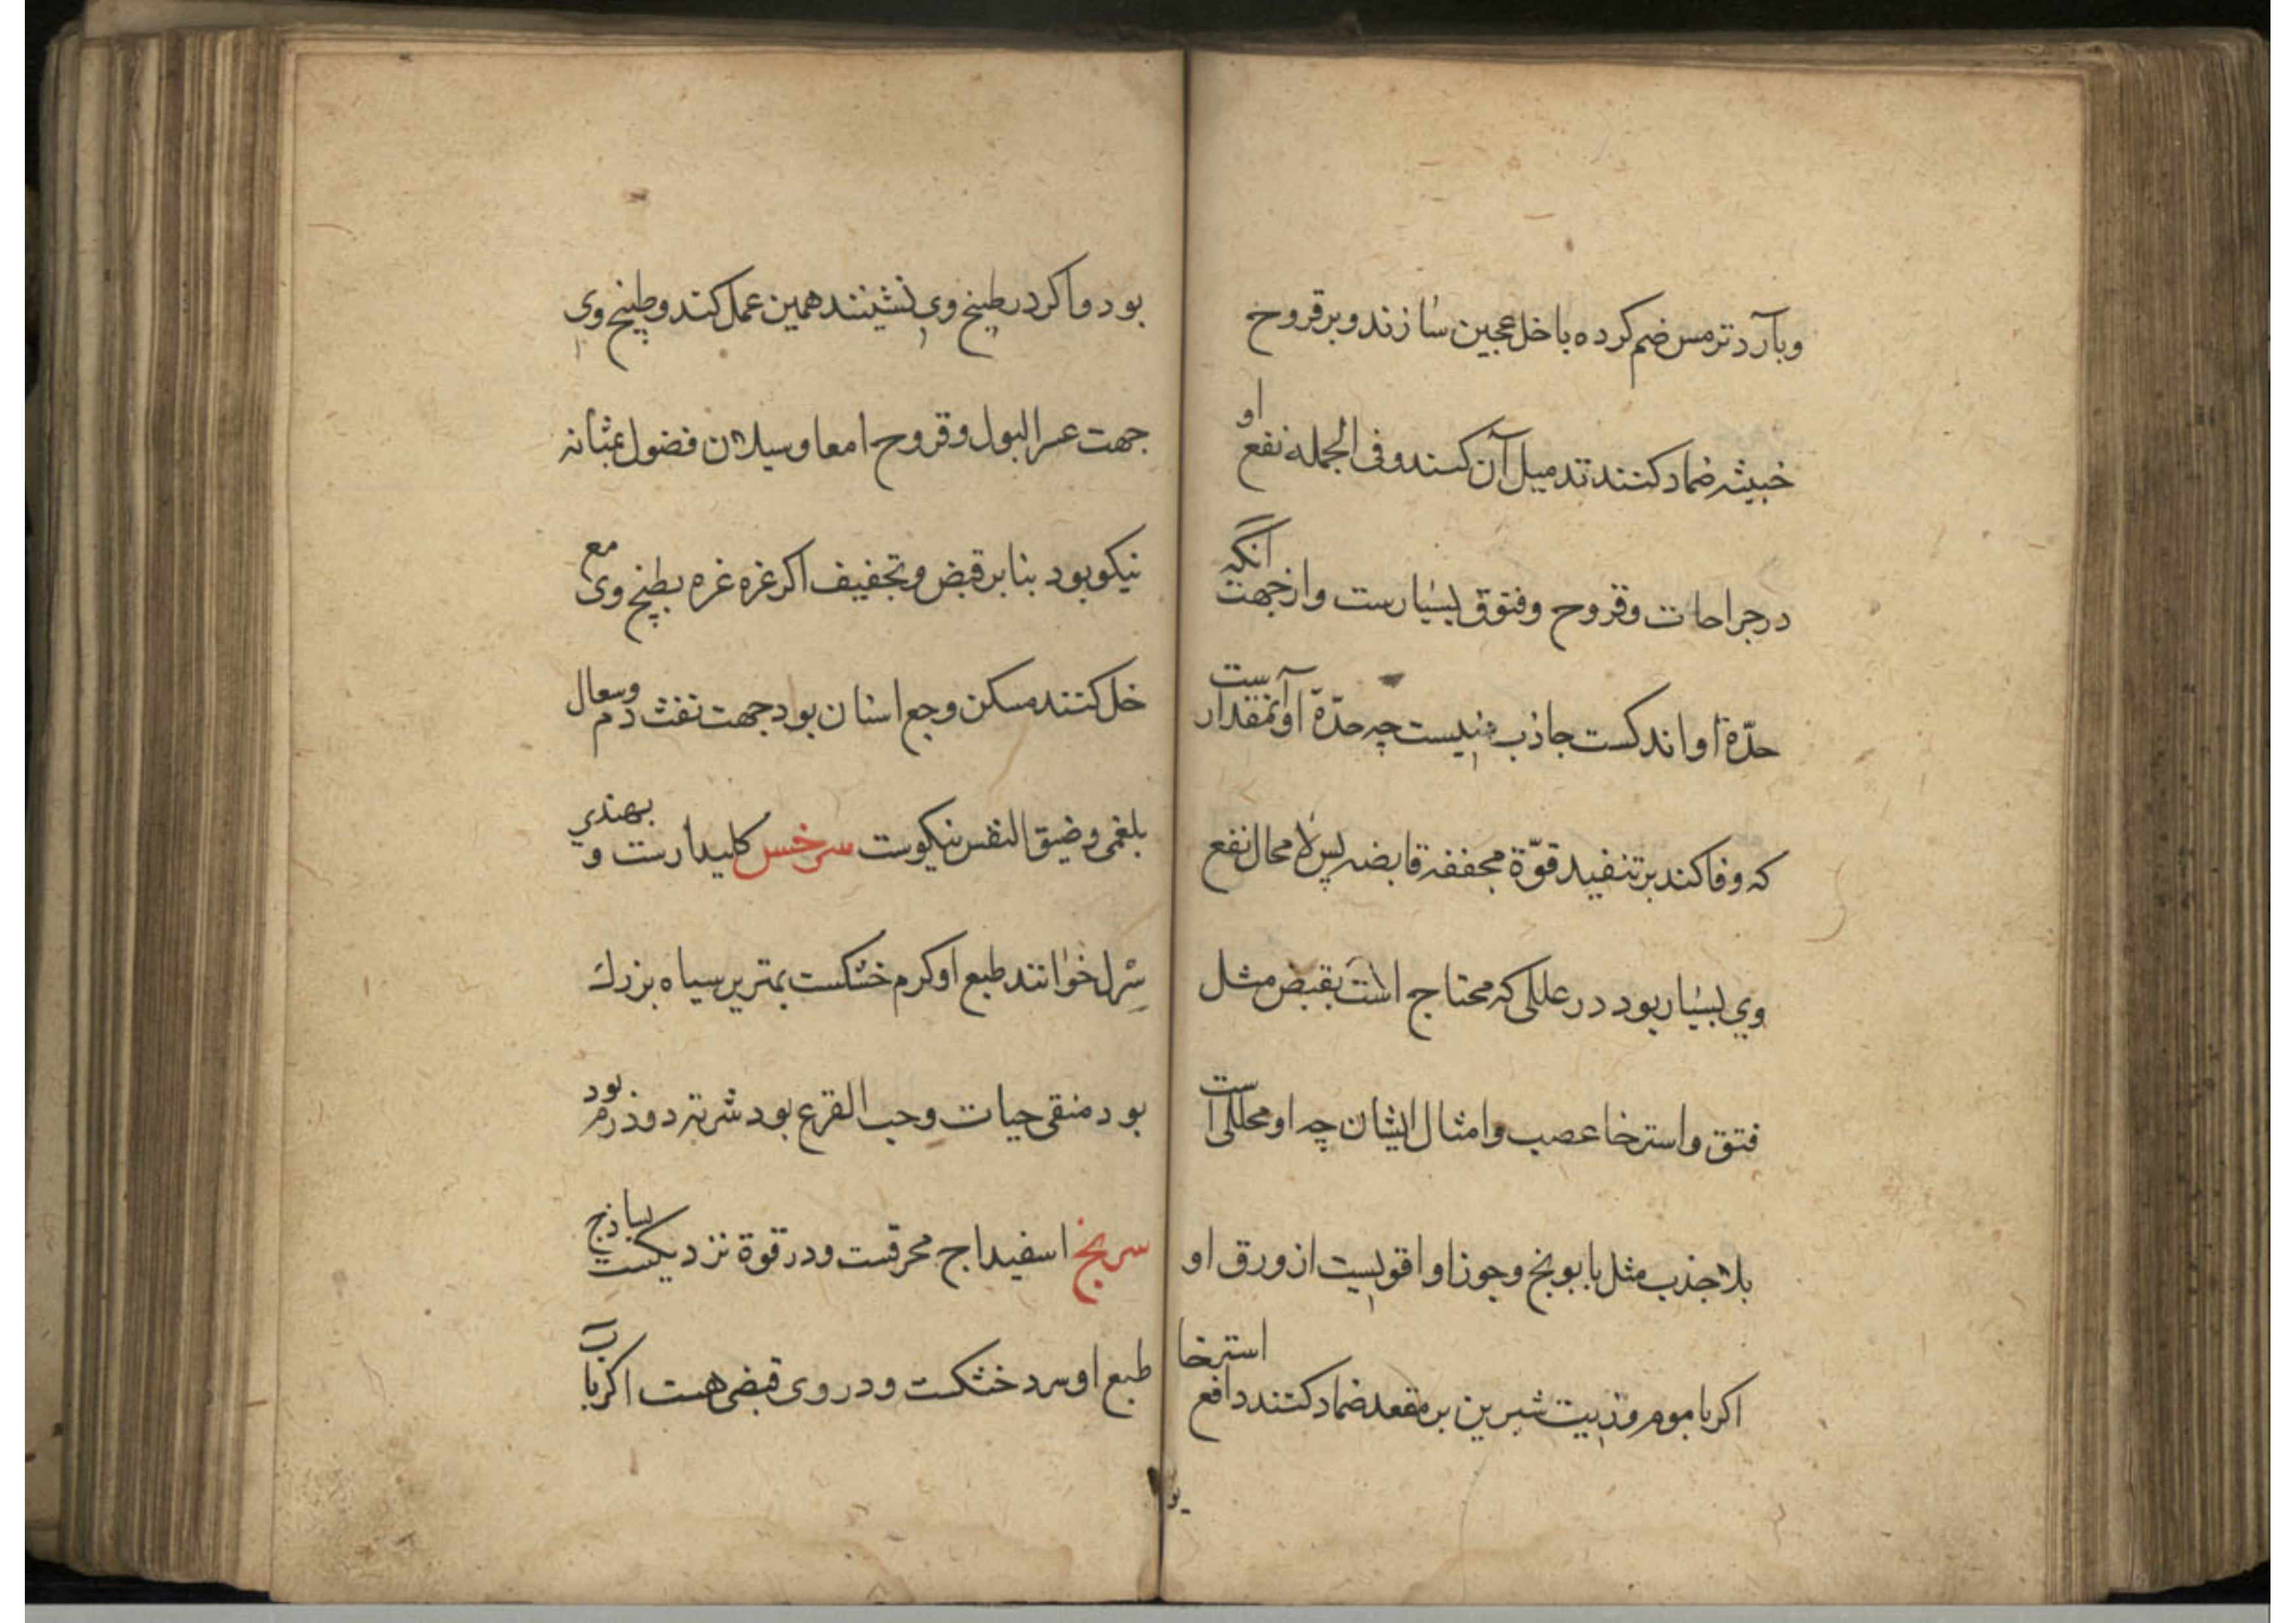 وبآرد ترمس ضم کرده باخل عجین سازند وبر قروح
خبیثه ضماد کنند تدمیل آن کنند وفی الجمله نفع او
در جراحات وقروح وفتوق بسیارست وازجهت آنکه
حدّة او اندکست جاذب نیست چه حدّة او آنمقدار نیست
که وفا کند بر تنفید قوّة مجففه قابضه پس لا محال نفع
وی بسیار بود در عللی که محتاج است بقبض مثل
فتق واسترخا عصب وامثال ایشان چه او محللی است
بلا جذب مثل بابونج وجوز او اقویست از ورق او
اکر با موم وزیت شیرین بر مقعد ضماد کنند دافع استرخا
بود واکر در طبیخ وی نشینند همین عمل کند وطبیخ وی
جهت عسر البول وقروح امعا وسیلان فضول بمثانه
نیکو بود بنابر قبض وتجفیف اکر غره غره بطبیخ وی مع
خل کنند مسکن وجع اسنان بود جهت نفث دم وسعال
بلغمی وضیق النفس نیکوست سرخس کلیدارست و بهندی
سرل خوانند طبع او کرم خشکست بهترین سیاه بزرک
بود منقی حیات وحب القرع بود شربته دو درم بود
سرنج اسفیداج محرقست ودر قوة نزدیکست بساذج
طبع او سرد خشکست ودر وی قبضی هست اکر بآب